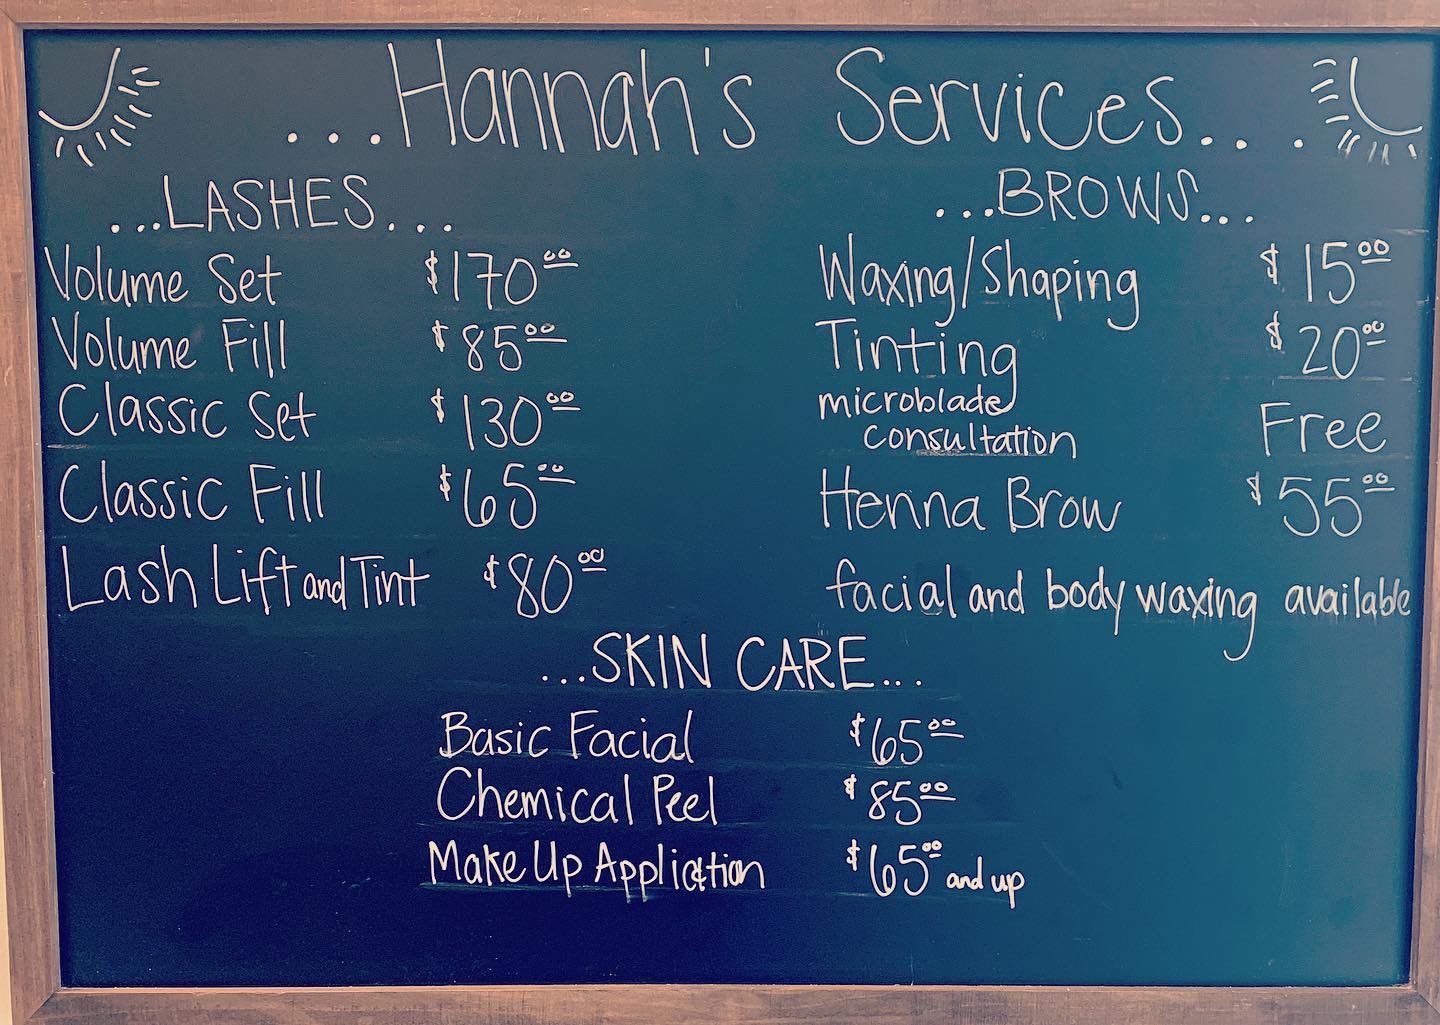 ...Hannah's Services...
...LASHES...
Volume Set $170.00
Volume Fill $85.00
Classic Set $130.00
Classic Fill $65.00
Lash Lift and Tint $80.00
...BROWS...
Waxing/Shaping $15.00
Tinting $20.00
microblade
consultation Free
Henna Brow $55.00
facial and body waxing available
...SKIN CARE...
Basic Facial $65.00
Chemical Peel $85.00
Make Up Application $65.00 and up